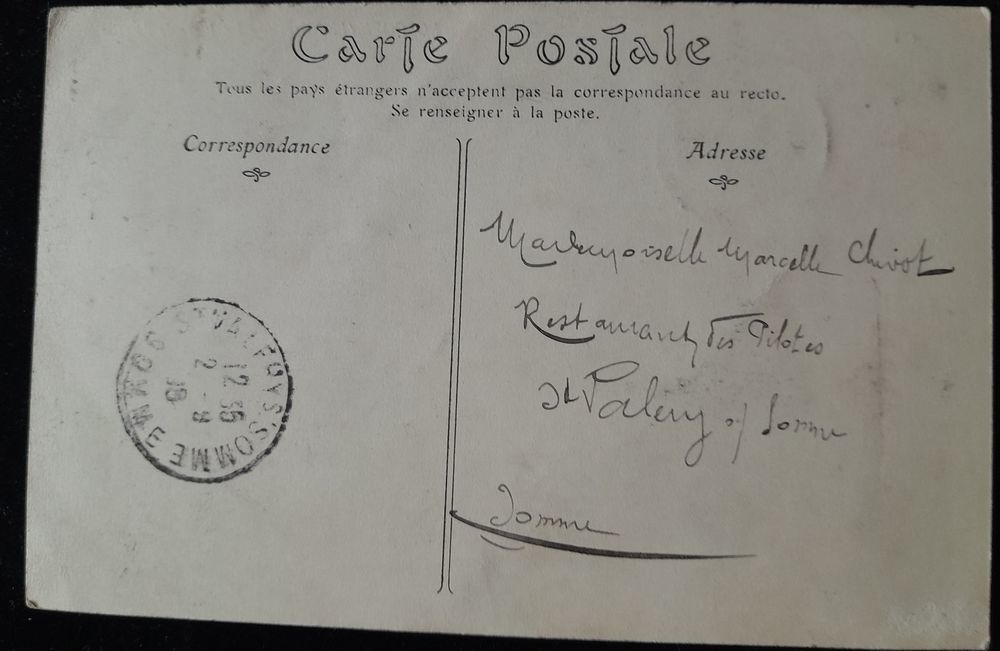 Carte Postale
Tous les pays étrangers n'acceptent pas la correspondance au recto.
Se renseigner à la poste.
Correspondance
Adresse
Mademoiselle Marcelle Chivot
Restaurant des Pilotes
St Valery s/ Somme
Somme
SOMME
12 35
2 - 9